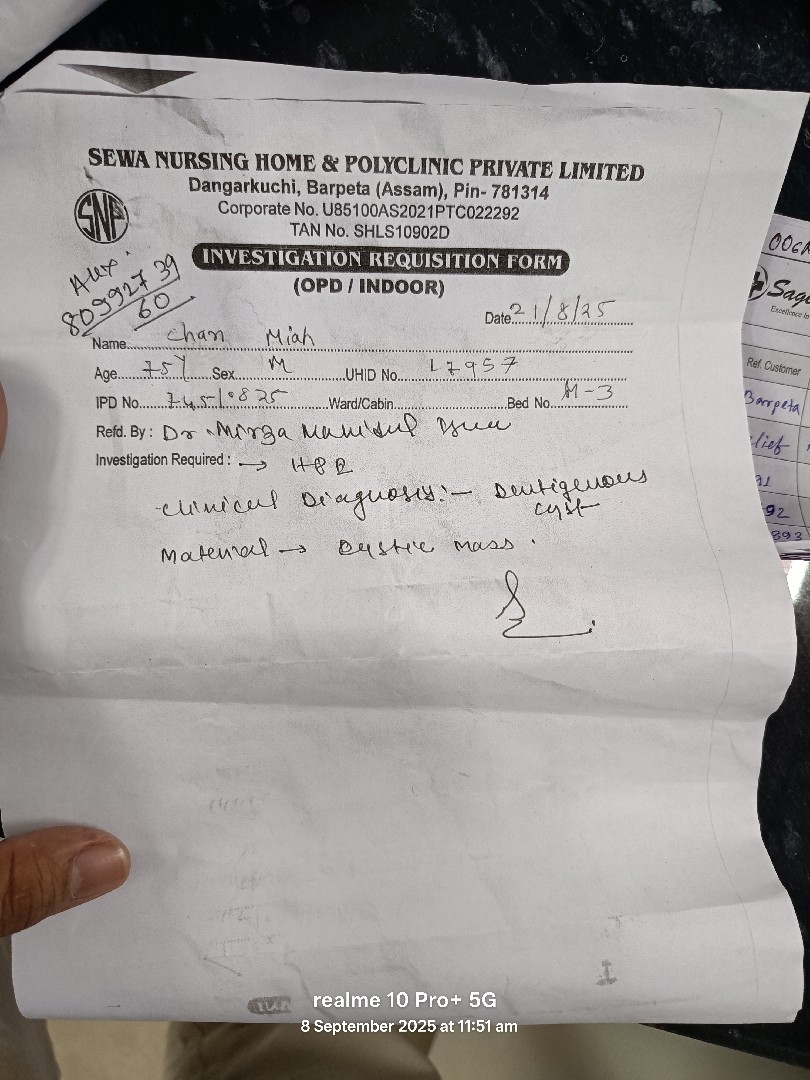 SEWA NURSING HOME & POLYCLINIC PRIVATE LIMITED
Dangarkuchi, Barpeta (Assam), Pin- 781314
Corporate No. U85100AS2021PTC022292
TAN No. SHLS10902D
SNP
INVESTIGATION REQUISITION FORM
(OPD / INDOOR)
8099273960
Date 21/8/25
Name Chan Miah
Age 75Y Sex M UHID No. 17957
IPD No. Ward/Cabin Bed No. M-3
Refd. By : Dr. Mirza
Investigation Required : → HPE
Clinical Diagnosis:- Dentigenous
cyst
Material → Cystic mass.
006
Sage
Excellence in
Ref. Customer
Barpeta
lief
91
92
893
realme 10 Pro+ 5G
8 September 2025 at 11:51 am